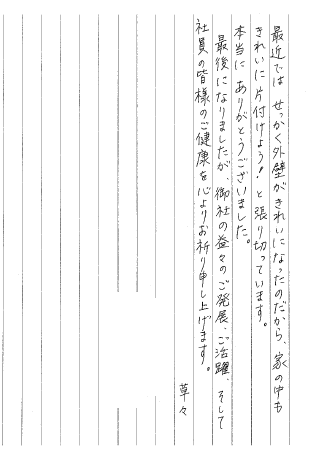 最近では せっかく外壁がきれいになったのだから、家の中も
きれいに片付けよう！と張り切っています。
本当に ありがとうございました。
最後になりましたが、御社の益々のご発展、ご活躍、そして
社員の皆様のご健康を心よりお祈り申し上げます。
草々